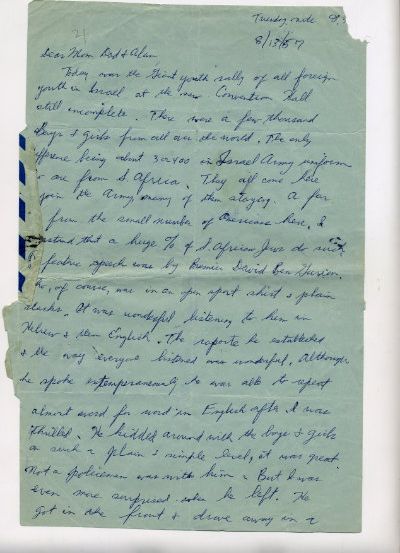 21
Tuesday nite
8/13/57
Dear Mom Dad & Alan,
Today was the Giant youth rally of all foreign
youth in Israel at the new Convention Hall
still incomplete. There were a few thousand
boys & girls from all over the world. The only
fference being about 30 in Israel Army uniform
are from S. Africa. They all come here
join the Army, many of them staying. A far
from the small number of Americans here. I
stand that a huge % of S. African Jews do
feature speech was by Premier David Ben Gurion.
He, of course, was in an open sport shirt & plain
slacks. It was wonderful listening to him in
Hebrew & then English. The rapport he established
& the way everyone listened was wonderful. Although
he spoke extemporaneously he was able to repeat
almost word for word in English after. I was
thrilled. He kidded around with the boys & girls
on such a plain & simple level, it was great.
Not a policeman was with him. But I was
even more surprised when he left. He
got in the front & drove away in a